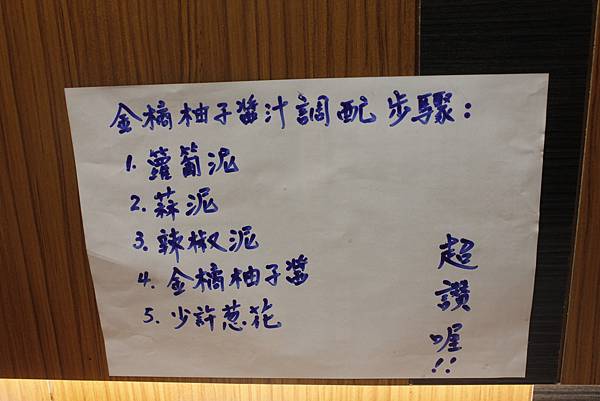 金橘柚子醬汁調配步驟：
1. 蘿蔔泥
2. 蒜泥
3. 辣椒泥
4. 金橘柚子醬
5. 少許蔥花
超讚喔!!